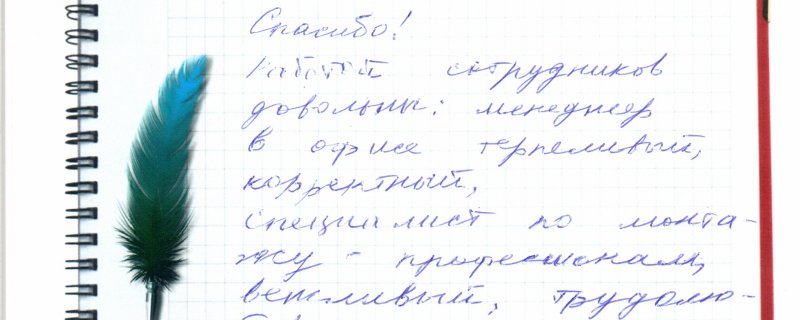 Спасибо!
Работой сотрудников
довольны: менеджер
в офисе терпеливый,
корректный,
специалист по монта-
жу - профессионал,
вежливый, трудолю-